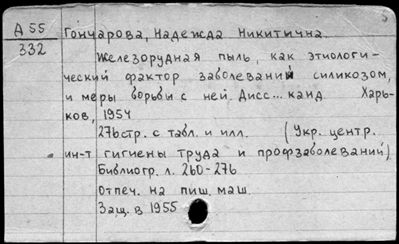 А 55
332
Гончарова, Надежда Никитична.
Железорудная пыль, как этиологи-
ческий фактор заболеваний силикозом,
и меры борьбы с ней. Дисс... канд Харь-
ков, 1954
276стр. с табл. и илл. (Укр. центр.
ин-т гигиены труда и профзаболеваний)
Библиогр. л. 260-276
Отпеч. на пиш. маш.
Защ. в 1955